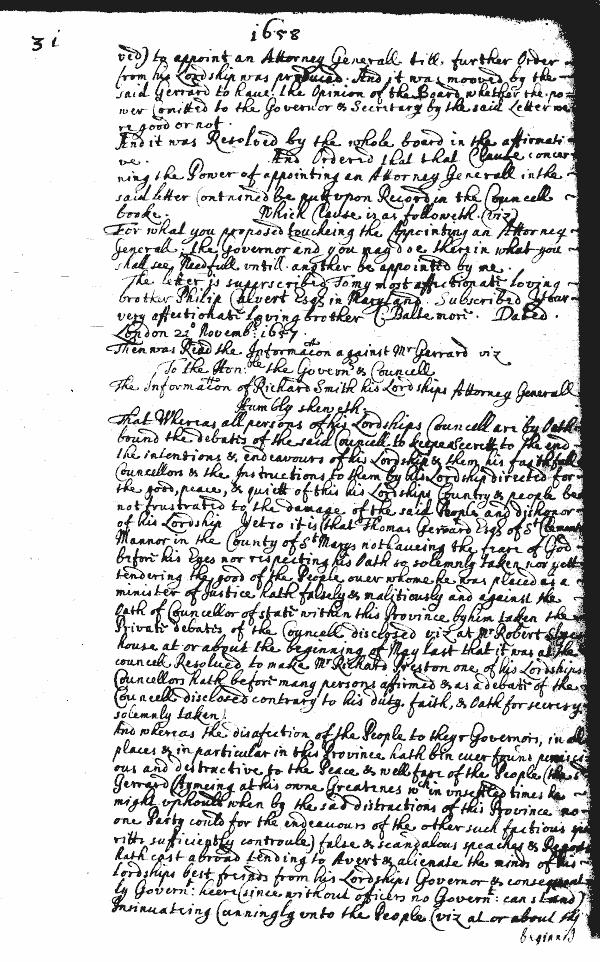 1658
31
ved) to appoint an Attorney Generall till further Order
from his Lordship was produced. And it was mooved by the
said Gerrard to have the Opinion of the Board whether the po=
wer Comitted to the Governor & Secretary by the said Letter we
re good or not.
And it was Resolved by the whole board in the affirmati
ve. And Ordered that that Clause concer
ning the Power of appointing an Attorney Generall in the
said letter Contained be putt upon Record in the Councell
booke. Which Clause is as followeth (viz)
For what you proposed toucheing the Appointing an Attorney
Generall, the Governor and you may doe therein what you
shall see Needfull untill another be appointed by me.
The letter is superscribed To my most affectionate loving
brother Philip Calvert Esqr in Maryland. Subscribed Your
very affectionate Loving brother C: Baltemore. Dated
London 23o Novembr 1657.
Then was Read the Informacon against Mr Gerrard viz
To the Honble the Governr & Councell
The Information of Richard Smith his Lordships Attorney Generall
Humbly sheweth,
That Whereas all persons of his Lordships Councell are by Oath
bound the debates of the said Councell to keepe Secrett to the end
the intentions & endeavours of his Lordship & them his faithfull
Councellors & the Instructions to them by his Lordship directed for
the good, peace, & quiett of this his Lordships Country & people be
not frustrated to the damage of the said People and dishonor
of his Lordship Yet so it is (that Thomas Gerrard Esqr of St Clements
Mannor in the County of St Marys not haveing the feare of God
before his Eyes nor respecting his Oath so solemnly taken nor yett
tendering the good of the People over whome he was placed as a
minister of Justice hath falsely & malitiously and against the
Oath of Councellor of state within this Province by him taken the
Private debates of the Councell disclosed viz at Mr Robert
house at or about the beginning of May last that it was at the
councell Resolved to make Mr Richard Preston one of his Lordships
Councellors hath before many persons affirmed & as a debate of the
Councell disclosed contrary to his duty, faith, & Oath for secresy
solemnly taken)
And whereas the disafection of the People to theyr Governors, in all
places & in particular in this Province hath bin ever found pernici=
ous and destructive to the Peace & wellfare of the People (the sd
Gerrard Aymeing at his owne Greatenes wch in unsetled times he
might uphould when by the sad distractions of this Province no
one Party could for the endeavours of the other such factious spi
ritts sufficiently controule) false & scandalous speaches & Reports
hath cast abroad tending to Avert & alienate the minds of his
Lordships best freinds from his Lordships Governor & consequent
ly Governt: heere (since without officers no Governt: can stand)
Insinuateing Cunningly unto the People (viz at or about the
beginnig